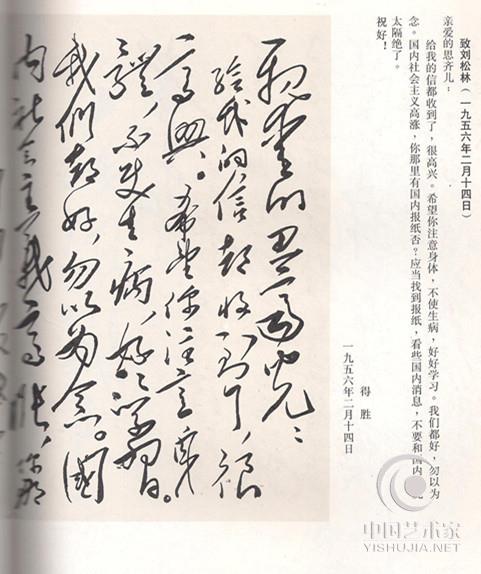 致刘松林(一九五六年二月十四日)
亲爱的思齐儿：
给我的信都收到了，很高兴。希望你注意身体，不使生病，好好学习。我们都好，勿以为
念。国内社会主义高涨，你那里有国内报纸否？应当找到报纸，看些国内消息，不要和国内况
太隔绝了。
祝好！
得胜
一九五六年二月十四日
親愛的思齊兒：
给我的信都收到了，很
高興。希望你注意身
體，不使生病，好好学習。
我们都好，勿以为念。國
内社会主義高漲，你那
中国艺术家
YISHUJIA.NET